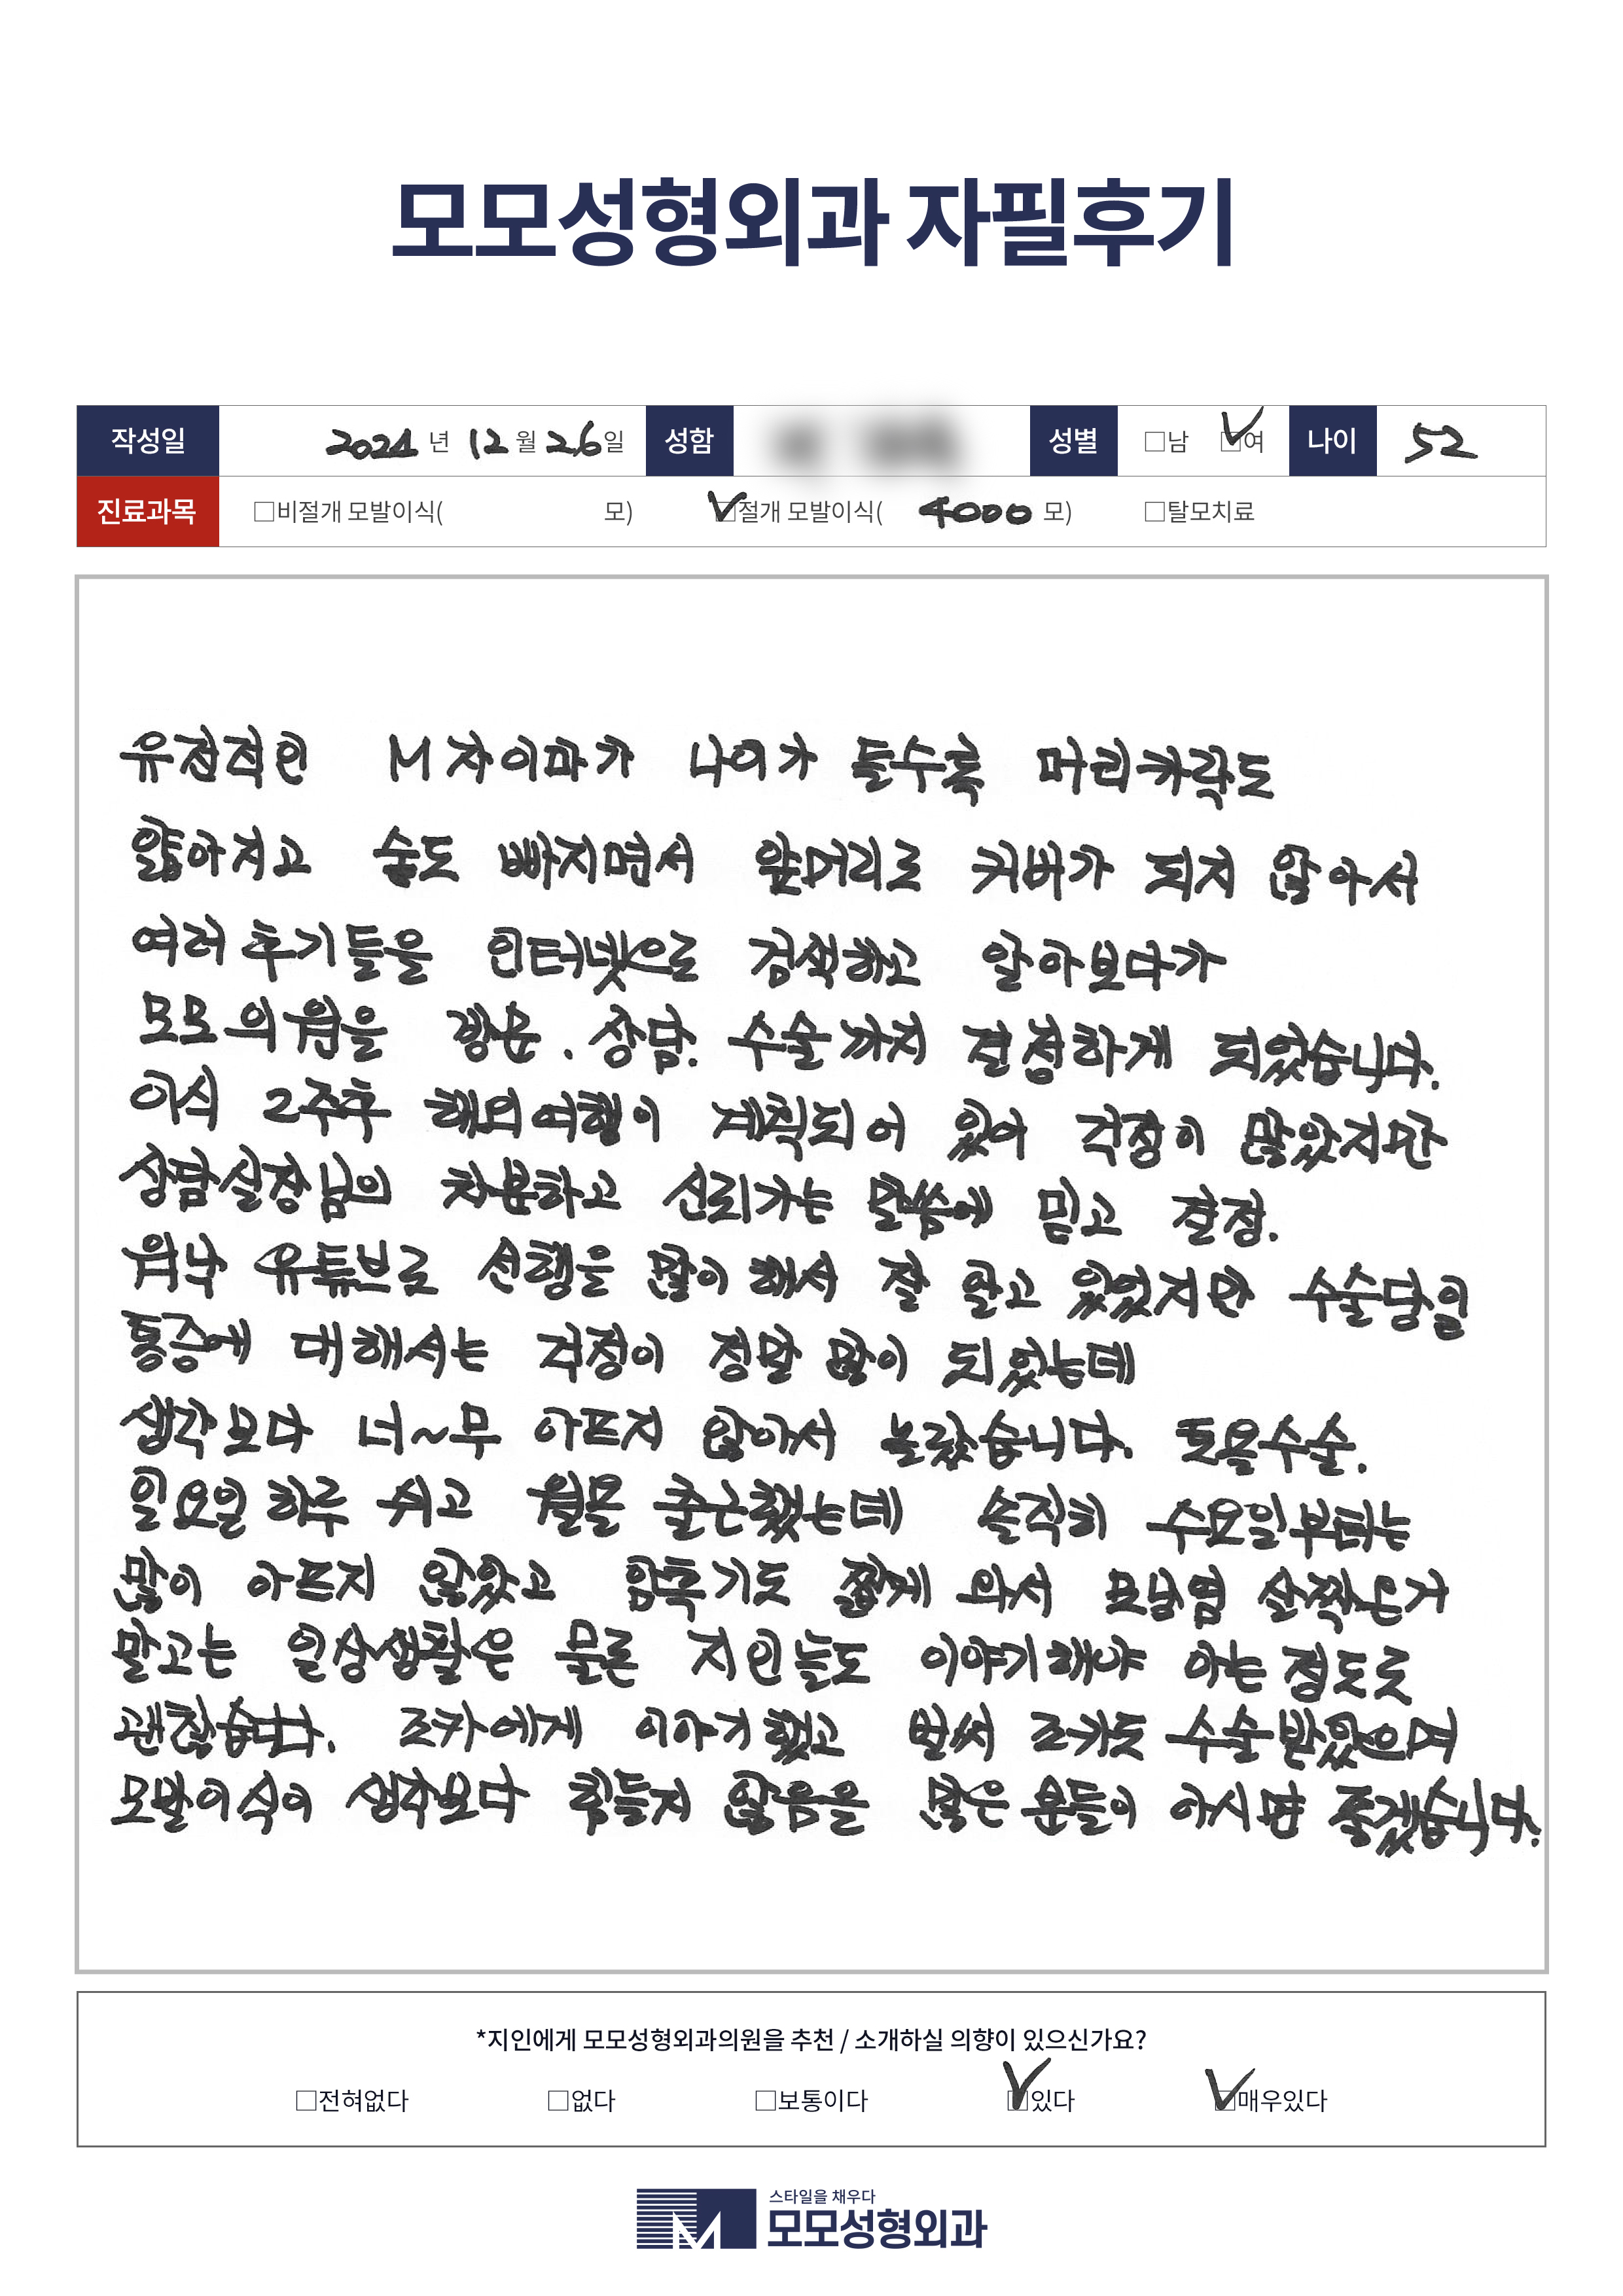 모모성형외과 자필후기
작성일 2024 년 12 월 26 일 성함 성별 □남 ☑여 나이 52
진료과목 □비절개 모발이식( 모) ☑절개 모발이식( 4000 모) □탈모치료
유전적인 M자이마가 나이가 들수록 머리카락도
얇아지고 숱도 빠지면서 앞머리로 커버가 되지 않아서
여러 후기들을 인터넷으로 검색하고 알아보다가
모모의원을 방문. 상담. 수술까지 결정하게 되었습니다.
이식 2주후 해외여행이 계획되어 있어 걱정이 많았지만
상담실장님의 차분하고 신뢰가는 말씀에 믿고 결정.
워낙 유튜브로 선행을 많이 해서 잘 알고 있었지만 수술당일
통증에 대해서는 걱정이 정말 많이 되었는데
생각보다 너~무 아프지 않아서 놀랐습니다. 토욜수술.
일요일 하루 쉬고 월욜 출근했는데 솔직히 수요일부터는
많이 아프지 않았고 암흑기도 짧게 와서 모낭염 살짝온거
말고는 일상생활은 물론 지인들도 이야기해야 아는 정도로
괜찮습니다. 조카에게 이야기했고 벌써 조카도 수술받았으며
모발이식이 생각보다 힘들지 않음을 많은 분들이 아시면 좋겠습니다.
*지인에게 모모성형외과의원을 추천 / 소개하실 의향이 있으신가요?
□전혀없다 □없다 □보통이다 ☑있다 ☑매우있다
스타일을 채우다
모모성형외과